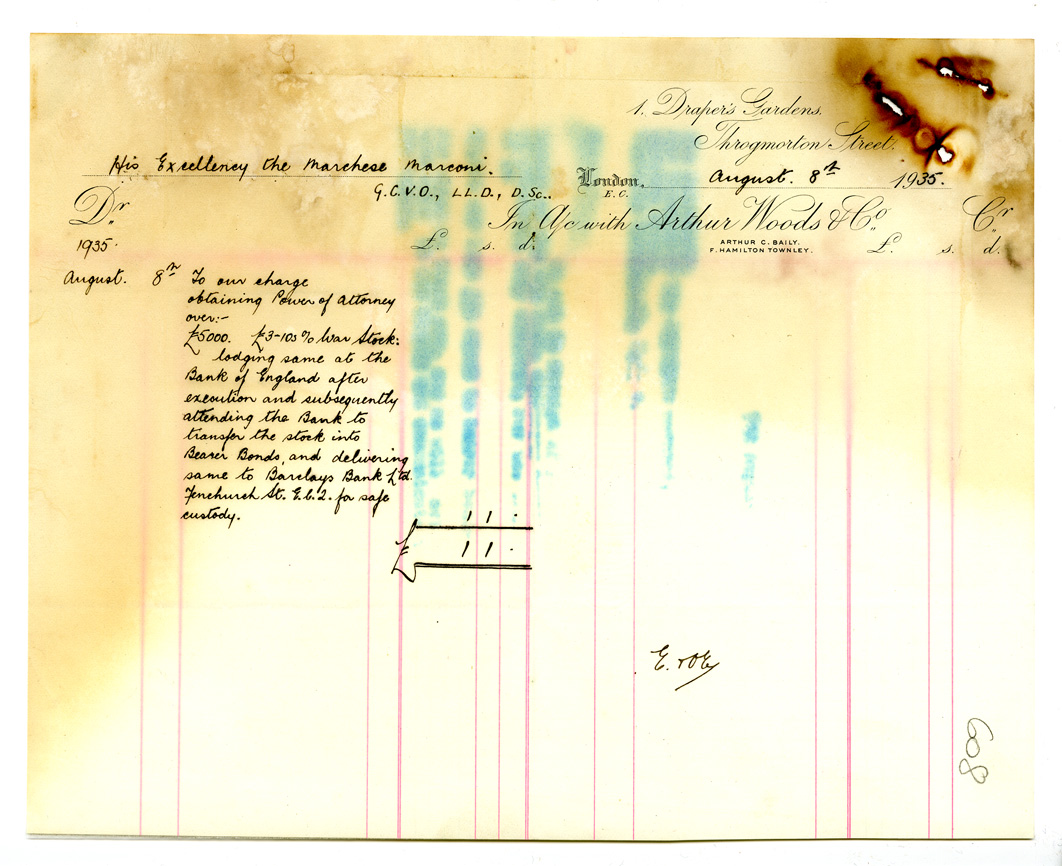 1. Draper's Gardens.
Throgmorton Street.
His Excellency the Marchese Marconi. London, August. 8th 1935.
G.C.V.O., LL.D., D.Sc.. E.C.
Dr. In A/c with Arthur Woods & Co. Cr.
ARTHUR C. BAILY.
F. HAMILTON TOWNLEY.
1935. £. s. d. £. s. d.
August. 8th To our charge
obtaining Power of Attorney
over:-
£5000. £3-10s % War Stock:
lodging same at the
Bank of England after
execution and subsequently
attending the Bank to
transfer the stock into
Bearer Bonds, and delivering
same to Barclays Bank Ltd.
Fenchurch St. E.C.2. for safe
custody.
1 1 .
£ 1 1 .
E. & O E
608